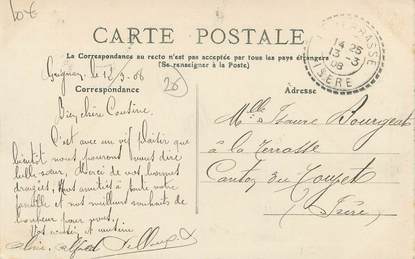 10€
CARTE POSTALE
La Correspondance au recto n'est pas acceptée par tous les pays étrangers
(Se renseigner à la Poste)
le 12/3-08
20
Correspondance
Bien chère Cousine,
C'est avec un vif plaisir que
bientôt nous pourrons vous dire
belle-sœur, Merci de vos bonnes
dragées, Nos amitiés à toute votre
famille et nos meilleurs souhaits de
bonheur pour vous,
Vos cousin et cousine
TERRASSE
14 25
13 -3
08
ISERE
Adresse
Mlle Bourgeat
à la Terrasse
Canton du Touvet
(Isère)